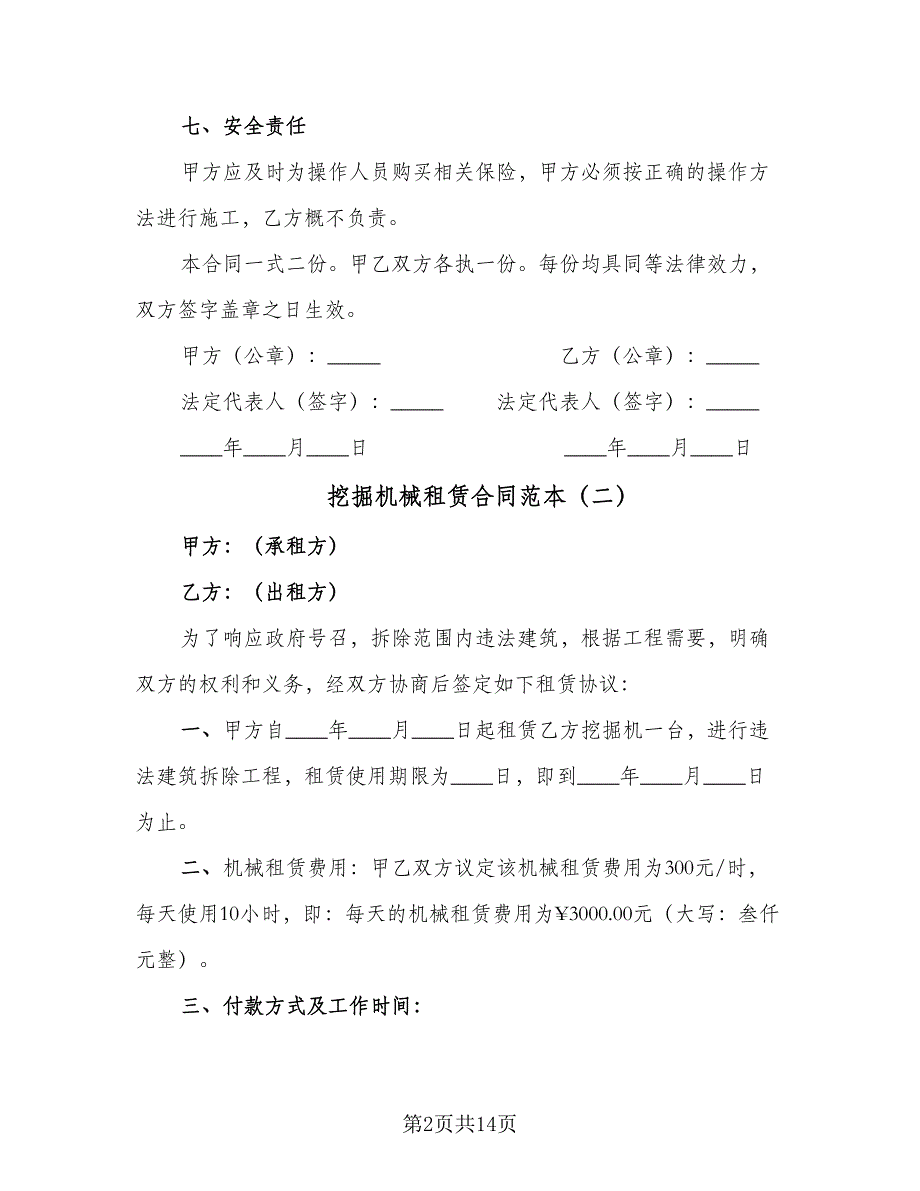 七、安全责任
甲方应及时为操作人员购买相关保险，甲方必须按正确的操作方
法进行施工，乙方概不负责。
本合同一式二份。甲乙双方各执一份。每份均具同等法律效力，
双方签字盖章之日生效。
甲方（公章）：_____ 乙方（公章）：_____
法定代表人（签字）：_____ 法定代表人（签字）：_____
____年____月____日 ____年____月____日
挖掘机械租赁合同范本（二）
甲方：（承租方）
乙方：（出租方）
为了响应政府号召，拆除范围内违法建筑，根据工程需要，明确
双方的权利和义务，经双方协商后签定如下租赁协议：
一、甲方自____年____月____日起租赁乙方挖掘机一台，进行违
法建筑拆除工程，租赁使用期限为____日，即到____年____月____日
为止。
二、机械租赁费用：甲乙双方议定该机械租赁费用为300元/时，
每天使用10小时，即：每天的机械租赁费用为¥3000.00元（大写：叁仟
元整）。
三、付款方式及工作时间：
第2页共14页